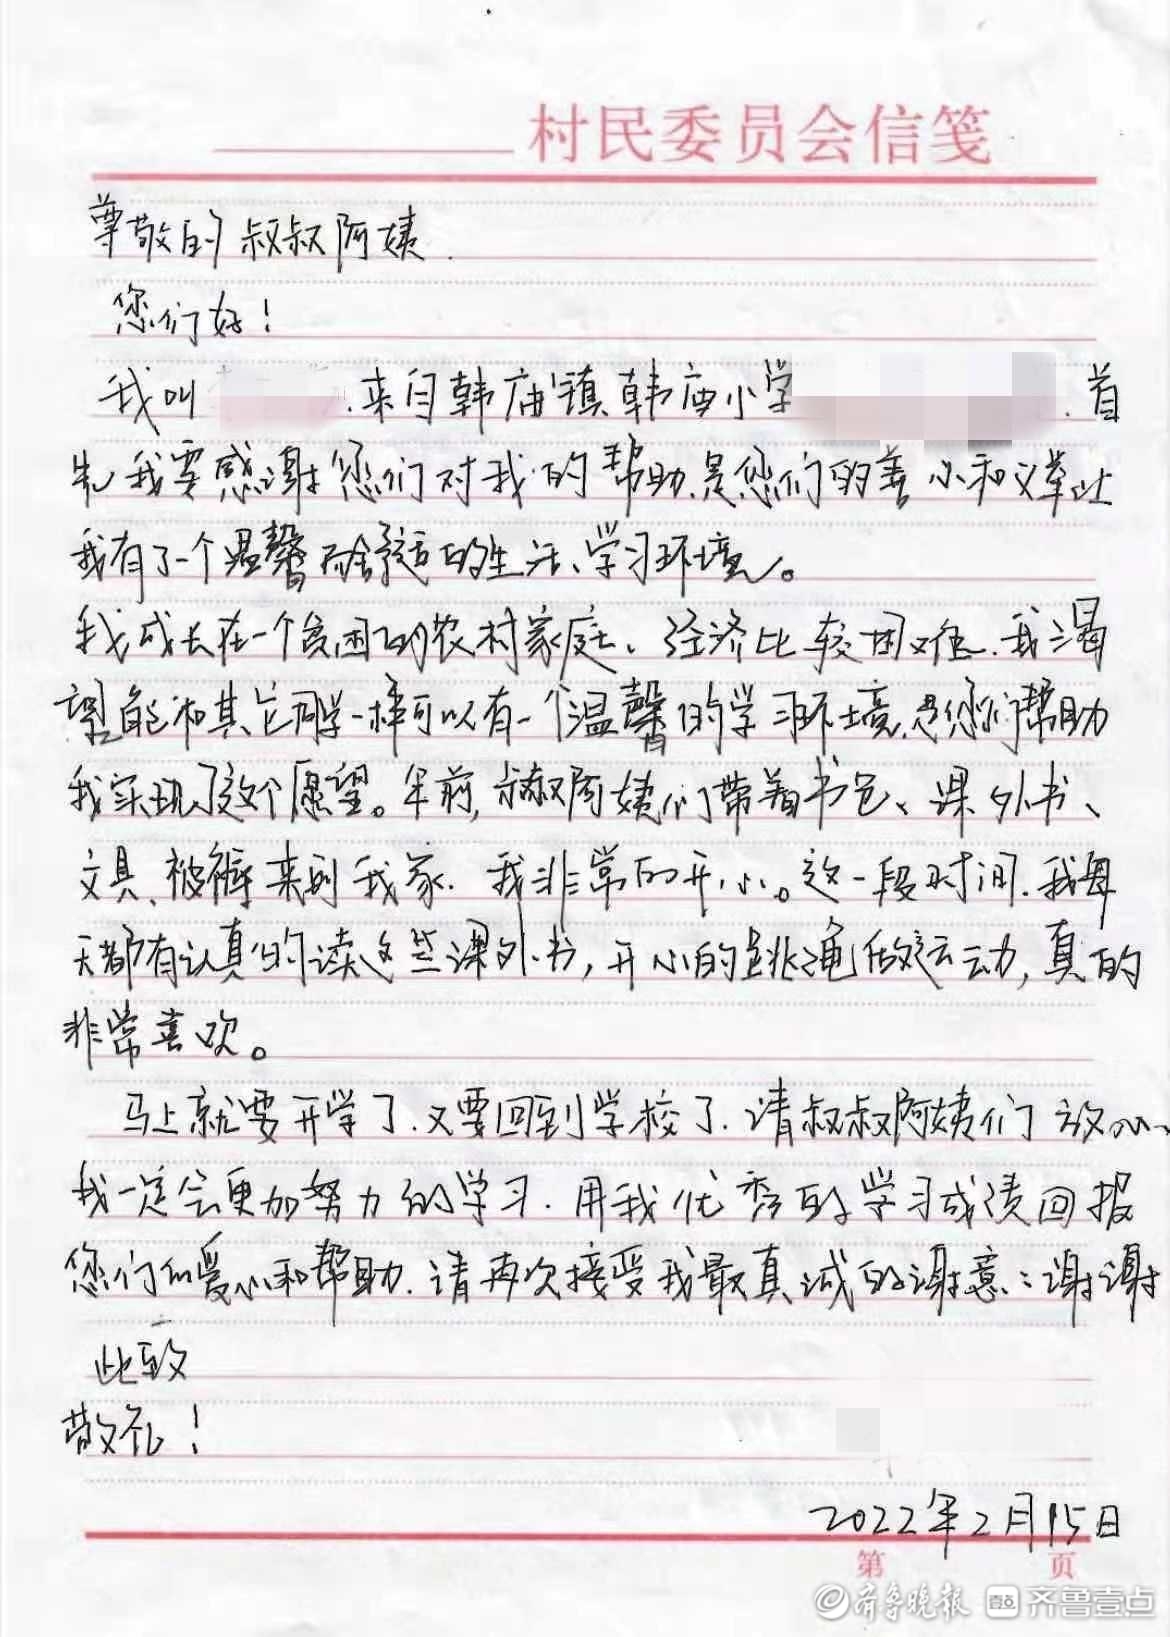 村民委员会信笺
尊敬的叔叔阿姨.
您们好!
我叫 .来自韩庙镇韩庙小学 .首
先我要感谢您们对我的帮助.是您们的善心和义举让
我有了一个温馨而舒适的生活、学习环境。
我成长在一个贫困的农村家庭、经济比较困难.我渴
望能和其它同学一样可以有一个温馨的学习环境.是您们帮助
我实现了这个愿望。年前,叔叔阿姨们带着书包、课外书、
文具、被褥来到我家.我非常的开心。这一段时间.我每
天都有认真的读这些课外书,开心的跳绳做运动,真的
非常喜欢。
马上就要开学了.又要回到学校了.请叔叔阿姨们放心、
我一定会更加努力的学习.用我优秀的学习成绩回报
您们的爱心和帮助.请再次接受我最真诚的谢意:谢谢
此致
敬礼!
2022年2月15日
第 页
齐鲁晚报 壹点 齐鲁壹点